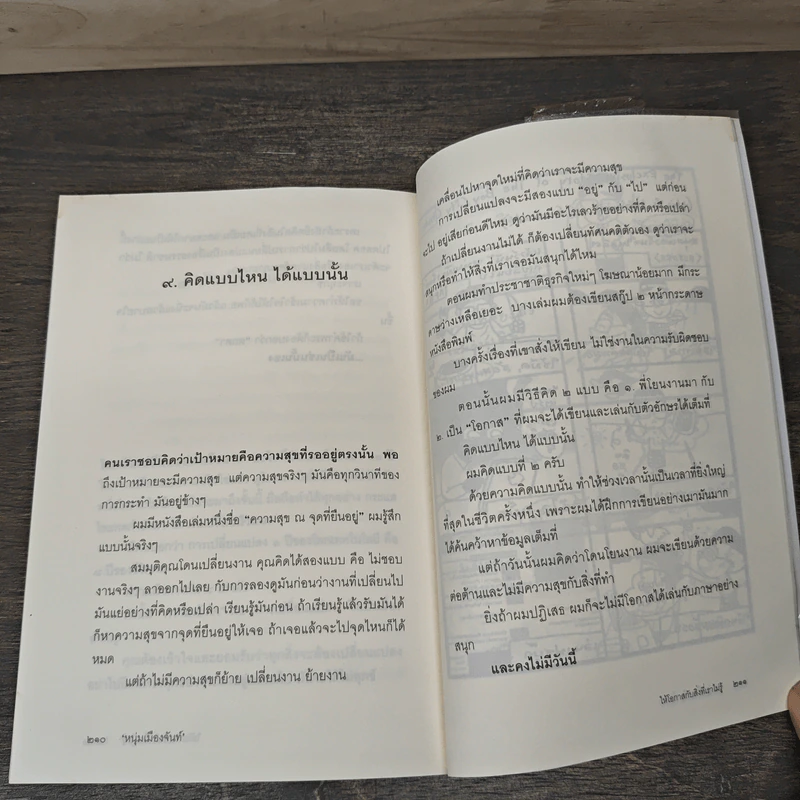 ๙. คิดแบบไหน ได้แบบนั้น
คนเราชอบคิดว่าเป้าหมายคือความสุขที่รออยู่ตรงนั้น พอ
ถึงเป้าหมายจะมีความสุข แต่ความสุขจริงๆ มันคือทุกวินาทีของ
การกระทำ มันอยู่ข้างๆ
ผมมีหนังสือเล่มหนึ่งชื่อ “ความสุข ณ จุดที่ยืนอยู่” ผมรู้สึก
แบบนั้นจริงๆ
สมมุติคุณโดนเปลี่ยนงาน คุณคิดได้สองแบบ คือ ไม่ชอบ
งานจริงๆ ลาออกไปเลย กับการลองดูมันก่อนว่างานที่เปลี่ยนไป
มันแย่อย่างที่คิดหรือเปล่า เรียนรู้มันก่อน ถ้าเรียนรู้แล้วรับมันได้
ก็หาความสุขจากจุดที่ยืนอยู่ให้เจอ ถ้าเจอแล้วจะไปจุดไหนก็ได้
หมด
แต่ถ้าไม่มีความสุขก็ย้าย เปลี่ยนงาน ย้ายงาน
๒๑๐ ‘หนุ่มเมืองจันท์’
เคลื่อนไปหาจุดใหม่ที่คิดว่าเราจะมีความสุข
การเปลี่ยนแปลงจะมีสองแบบ “อยู่” กับ “ไป” แต่ก่อน
จะไป อยู่เสียก่อนดีไหม ดูว่ามันมีอะไรเลวร้ายอย่างที่คิดหรือเปล่า
ถ้าเปลี่ยนงานไม่ได้ ก็ต้องเปลี่ยนทัศนคติตัวเอง ดูว่าเราจะ
สนุกหรือทำให้สิ่งที่เราเจอมันสนุกได้ไหม
ตอนผมทำประชาชาติธุรกิจใหม่ๆ โฆษณาน้อยมาก มีกระ
ดาษว่างเหลือเยอะ บางเล่มผมต้องเขียนสกู๊ป ๒ หน้ากระดาษ
หนังสือพิมพ์
บางครั้งเรื่องที่เขาสั่งให้เขียน ไม่ใช่งานในความรับผิดชอบ
ของผม
ตอนนั้นผมมีวิธีคิด ๒ แบบ คือ ๑. พี่โยนงานมา กับ
๒. เป็น “โอกาส” ที่ผมจะได้เขียนและเล่นกับตัวอักษรได้เต็มที่
คิดแบบไหน ได้แบบนั้น
ผมคิดแบบที่ ๒ ครับ
ด้วยความคิดแบบนั้น ทำให้ช่วงเวลานั้นเป็นเวลาที่ยิ่งใหญ่
ที่สุดในชีวิตครั้งหนึ่ง เพราะผมได้ฝึกการเขียนอย่างเมามันมาก
ได้ค้นคว้าหาข้อมูลเต็มที่
แต่ถ้าวันนั้นผมคิดว่าโดนโยนงาน ผมจะเขียนด้วยความ
ต่อต้านและไม่มีความสุขกับสิ่งที่ทำ
ยิ่งถ้าผมปฏิเสธ ผมก็จะไม่มีโอกาสได้เล่นกับภาษาอย่าง
สนุก
และคงไม่มีวันนี้
ให้โอกาสกับสิ่งที่เราไม่รู้ ๒๑๑